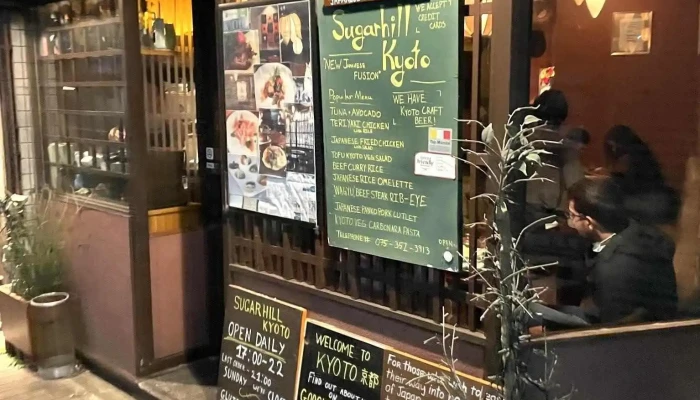 Sugarhill
Kyoto
WE ACCEPT
CREDIT
CARDS
"NEW JAPANESE
FUSION"
Popular Menu
TUNA + AVOCADO
TERIYAKI CHICKEN
JAPANESE FRIED CHICKEN
TOFU KYOTO VEG SALAD
BEEF CURRY RICE
JAPANESE RICE OMELETTE
WAGYU BEEF STEAK RIB-EYE
JAPANESE PANKO PORK CUTLET
KYOTO VEG CARBONARA PASTA
TELEPHONE# 075-352-3913
WE HAVE
KYOTO CRAFT
BEER!
OPEN
SUGARHILL
KYOTO
OPEN DAILY
17:00~22
LAST ORDER - 21:00
SUNDAY
WELCOME TO
KYOTO 京都
FIND OUT ABOUT
For those
their way into
of Japan